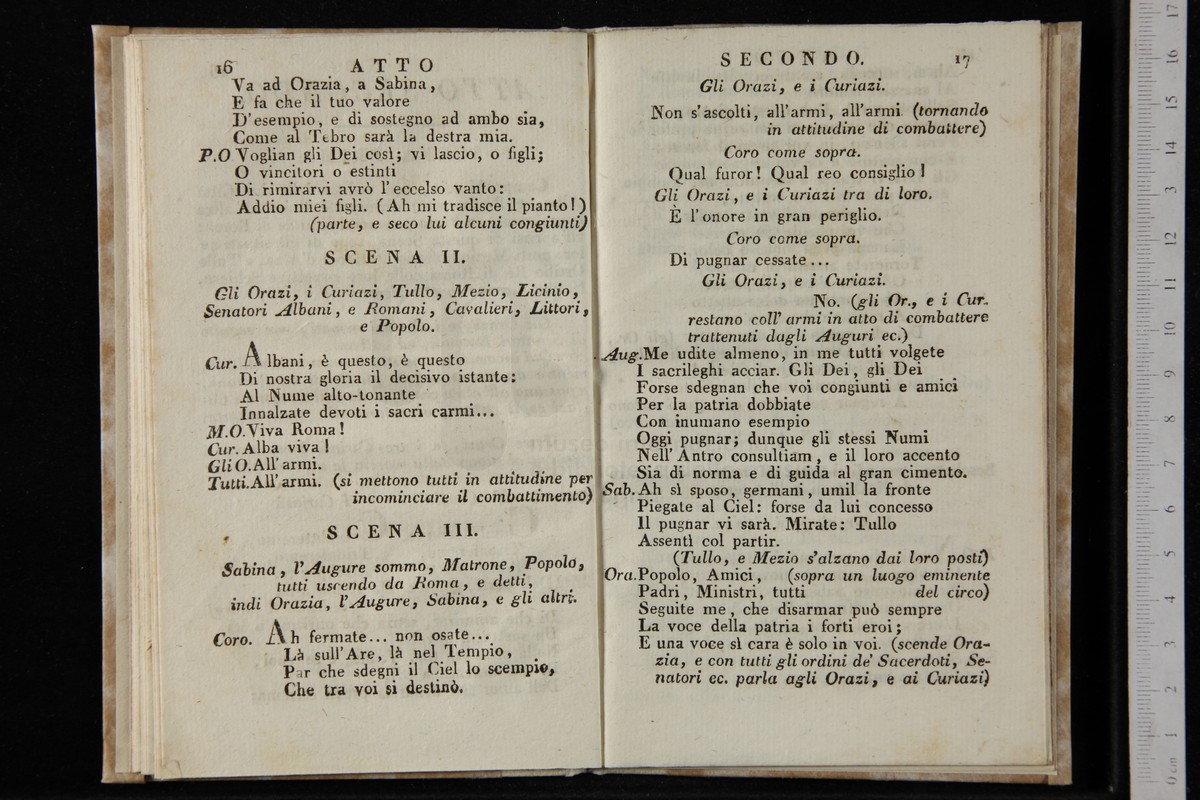 16 ATTO
Va ad Orazia, a Sabina,
E fa che il tuo valore
D'esempio, e di sostegno ad ambo sia,
Come al Tebro sarà la destra mia.
P.O Voglian gli Dei così; vi lascio, o figli;
O vincitori o estinti
Di rimirarvi avrò l'eccelso vanto:
Addio miei figli. (Ah mi tradisce il pianto!)
(parte, e seco lui alcuni congiunti)
SCENA II.
Gli Orazi, i Curiazi, Tullo, Mezio, Licinio,
Senatori Albani, e Romani, Cavalieri, Littori,
e Popolo.
Cur. Albani, è questo, è questo
Di nostra gloria il decisivo istante:
Al Nume alto-tonante
Innalzate devoti i sacri carmi...
M.O. Viva Roma!
Cur. Alba viva!
Gli O. All'armi.
Tutti. All'armi. (si mettono tutti in attitudine per
incominciare il combattimento)
SCENA III.
Sabina, l'Augure sommo, Matrone, Popolo,
tutti uscendo da Roma, e detti,
indi Orazia, l'Augure, Sabina, e gli altri.
Coro. Ah fermate... non osate...
Là sull'Are, là nel Tempio,
Par che sdegni il Ciel lo scempio,
Che tra voi si destinò.
SECONDO. 17
Gli Orazi, e i Curiazi.
Non s'ascolti, all'armi, all'armi (tornando
in attitudine di combattere)
Coro come sopra.
Qual furor! Qual reo consiglio!
Gli Orazi, e i Curiazi tra di loro.
È l'onore in gran periglio.
Coro come sopra.
Di pugnar cessate...
Gli Orazi, e i Curiazi.
No. (gli Or., e i Cur.
restano coll' armi in atto di combattere
trattenuti dagli Auguri ec.)
Aug. Me udite almeno, in me tutti volgete
I sacrileghi acciar. Gli Dei, gli Dei
Forse sdegnan che voi congiunti e amici
Per la patria dobbiate
Con inumano esempio
Oggi pugnar; dunque gli stessi Numi
Nell' Antro consultiam, e il loro accento
Sia di norma e di guida al gran cimento.
Sab. Ah sì sposo, germani, umil la fronte
Piegate al Ciel: forse da lui concesso
Il pugnar vi sarà. Mirate: Tullo
Assentì col partir.
(Tullo, e Mezio s'alzano dai loro posti)
Ora. Popolo, Amici, (sopra un luogo eminente
Padri, Ministri, tutti del circo)
Seguite me, che disarmar può sempre
La voce della patria i forti eroi;
E una voce sì cara è solo in voi. (scende Ora-
zia, e con tutti gli ordini de' Sacerdoti, Se-
natori ec. parla agli Orazi, e ai Curiazi)
17
16
15
14
13
12
11
10
9
8
7
6
5
4
3
2
1
0 cm